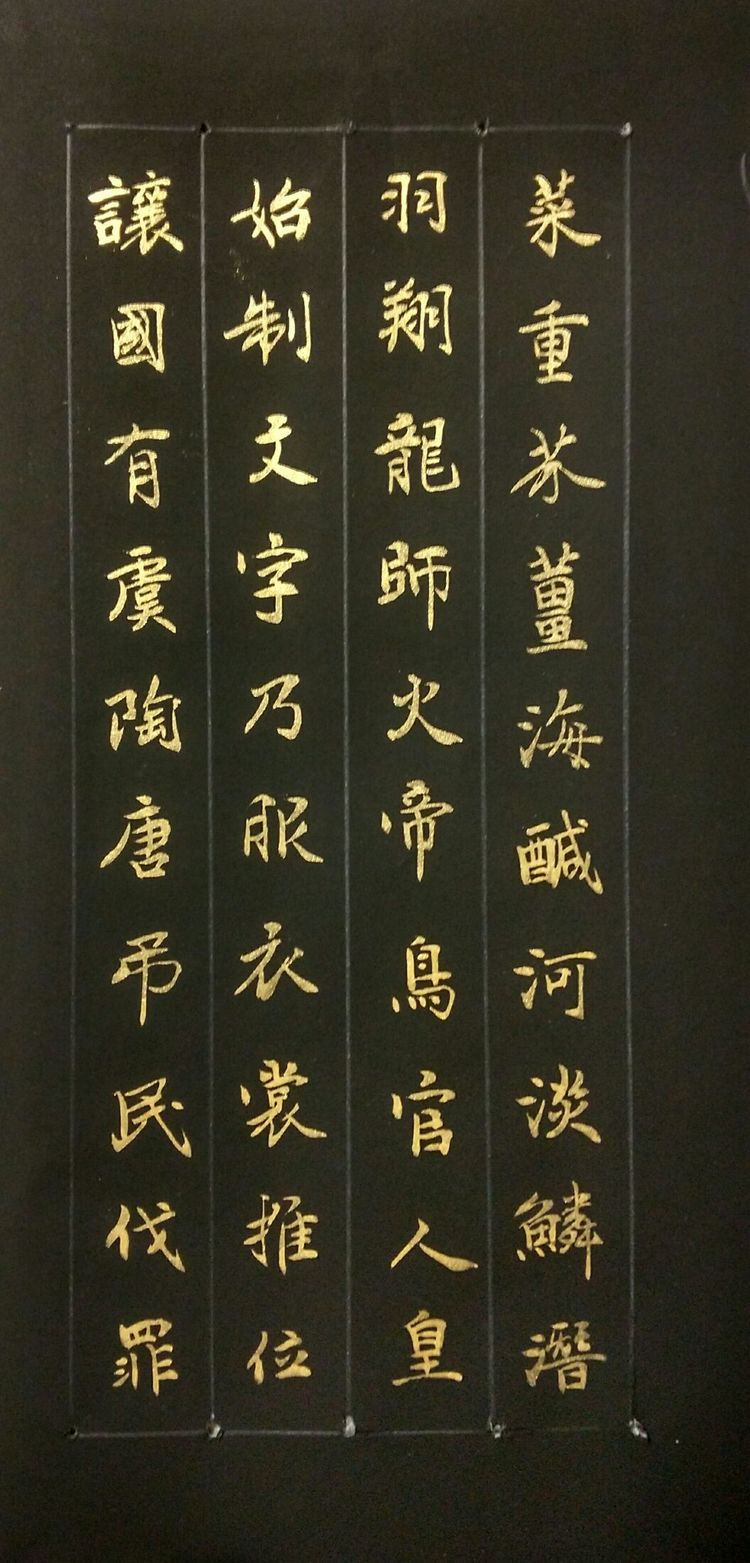 菜重芥薑海鹹河淡鱗潛
羽翔龍師火帝鳥官人皇
始制文字乃服衣裳推位
讓國有虞陶唐吊民伐罪